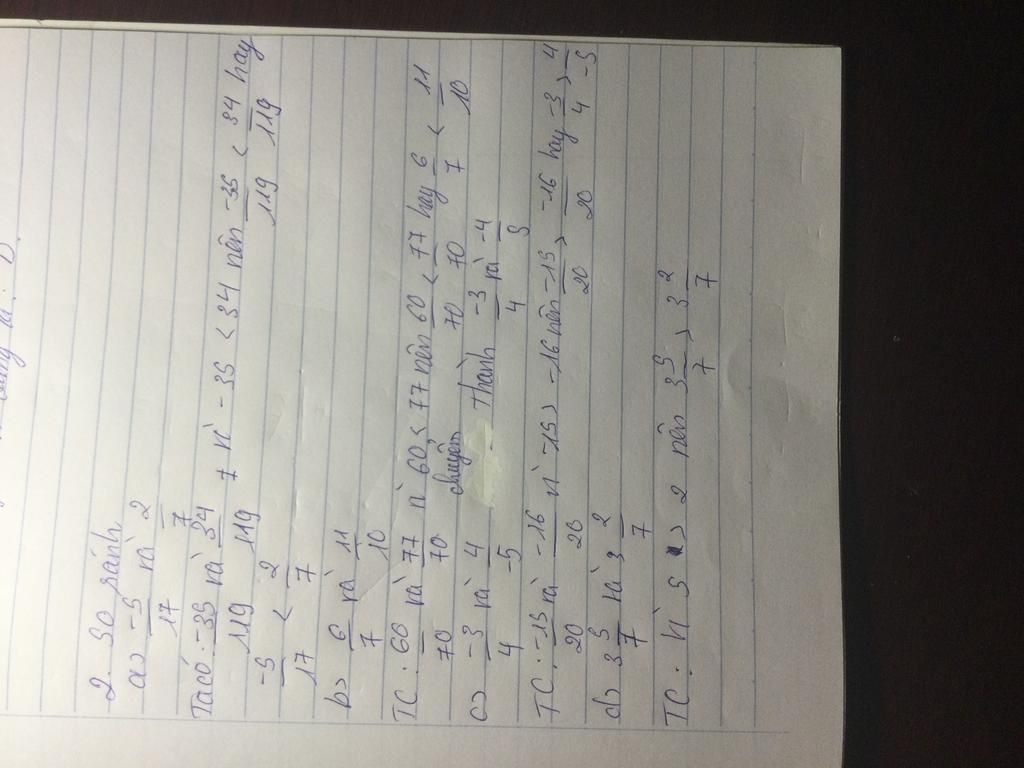 2. So sánh
a> -5/17 và 2/7
Ta có: -35/119 và 34/119 vì -35 < 34 nên -35/119 < 34/119 hay
-5/17 < 2/7
b> 6/7 và 11/10
TC: 60/70 và 77/70 vì 60 < 77 nên 60/70 < 77/70 hay 6/7 < 11/10
c> -3/4 và 4/-5 chuyển thành -3/4 và -4/5
TC: -15/20 và -16/20 vì -15 > -16 nên -15/20 > -16/20 hay -3/4 > 4/-5
d> 3 5/7 và 3 2/7
TC: Vì 5 > 2 nên 3 5/7 > 3 2/7